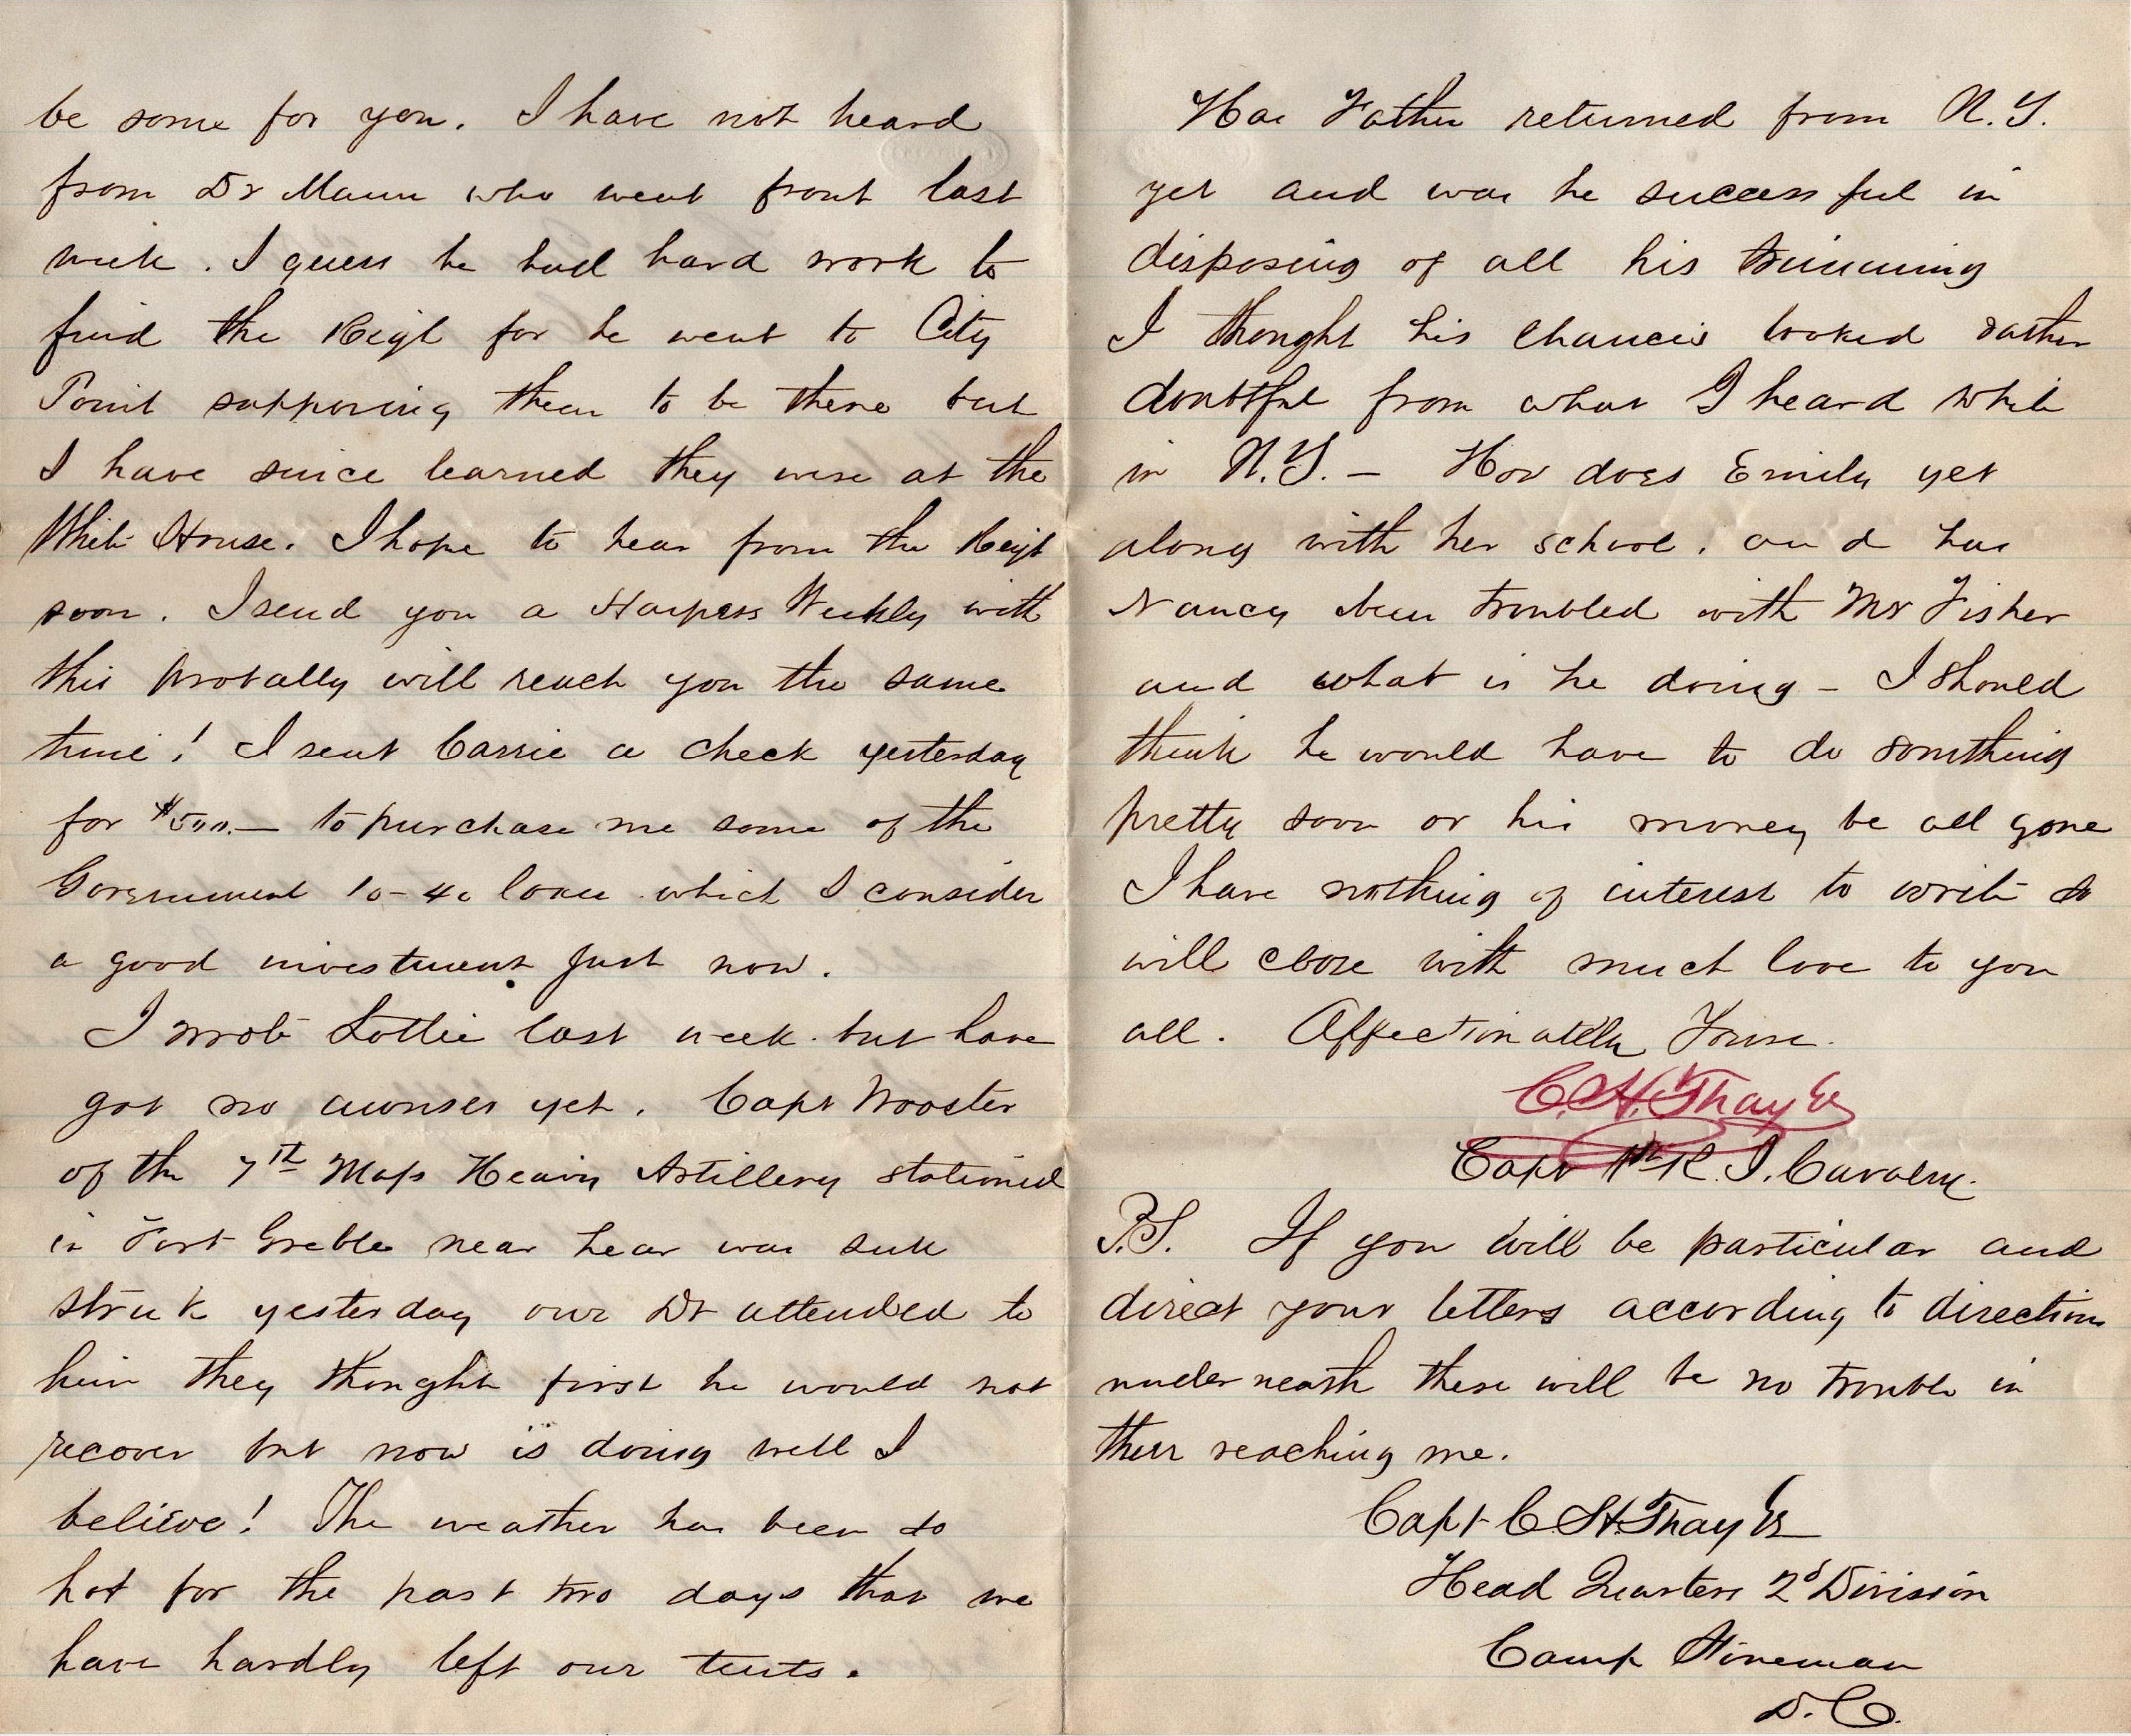 be some for you. I have not heard
from Dr Mann who went front last
week. I guess he had hard work to
find the Regt for he went to City
Point supposing them to be there but
I have since learned they were at the
White House. I hope to hear from the Regt
soon. I send you a Harpers Weekly with
this probally will reach you the same
time! I sent Carrie a check yesterday
for $500.— to purchase me some of the
Government 10-40 loan which I consider
a good investment just now.
I wrote Lottie last week but have
got no awnser yet. Capt Wooster
of the 7th Mass Heavy Artillery stationed
in Fort Greble near hear was sun
struck yesterday our Dr attended to
him they thought first he would not
recover but now is doing well I
believe! The weather has been so
hot for the past two days that we
have hardly left our tents.
Has Father returned from N.Y.
yet and was he successful in
disposing of all his trimming
I thought his chances looked rather
doubtful from what I heard while
in N.Y. — How does Emily get
along with her school. and has
Nancy been troubled with Mr Fisher
and what is he doing — I should
think he would have to do something
pretty soon or his money be all gone
I have nothing of interest to write so
will close with much love to you
all. Affectionately Yours.
C.H. Thayer
Capt 1st R.I. Cavalry.
P.S. If you will be particular and
direct your letters according to directions
underneath there will be no trouble in
their reaching me.
Capt C.H. Thayer
Head Quarters 2d Division
Camp Stoneman
D.C.